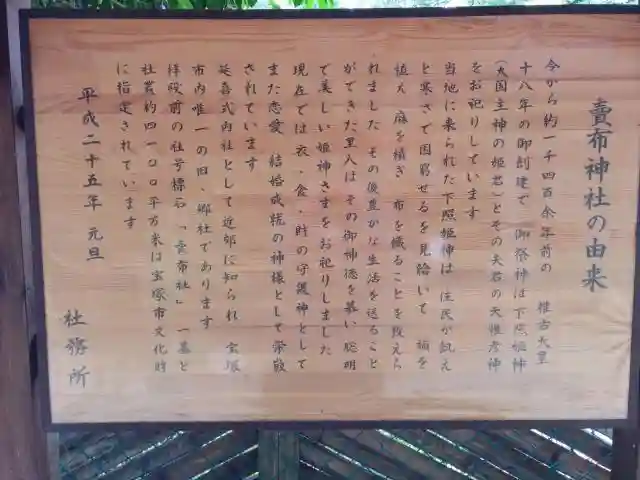 賣布神社の由来
今から約一千四百余年前の 推古天皇
十八年の御創建で 御祭神は下照姫神
(大国主神の姫君)とその夫君の天稚彦神
をお祀りしています
当地に来られた下照姫神は 住民が飢え
と寒さで困窮せるを見給いて 稲を
植え 麻を績ぎ 布を織ることを教えら
れました その後豊かな生活を送ること
ができた里人は その御神徳を慕い 聡明
で美しい姫神さまをお祀りしました
現在では衣・食・財の守護神として
また恋愛 結婚成就の神様として崇敬
されています
延喜式内社として近郷に知られ 宝塚
市内唯一の旧、郷社であります
拝殿前の社号標石「賣布社」 一基と
社叢約四一〇〇平方米は宝塚市文化財
に指定されています
平成二十五年 元旦
社務所